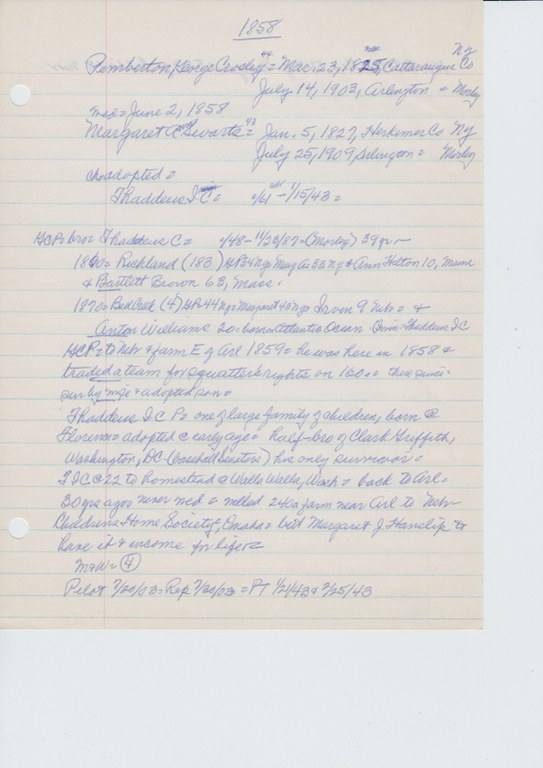 1858
Pemberton, George Crosley = Mac. 23, 1825, Cattaraugus Co NY
July 14, 1903, Arlington = Morley
md = June 2, 1858
Margaret A Swartz = Jan. 5, 1827, Herkimer Co NY
July 25, 1909, Arlington = Morley
ch adopted =
Thaddeus I C = /61 - 1/15/43 =
GCP = bro = Thaddeus C = /48 - 11/23/87 = (Morley) 39 yr -
1860 = Richland (183) GP 34 NY = Marg A 33 NY & Ann Hilton 10,
& Bartlett Brown 63, Mass.
1870 = Bell Creek (4) GP 44 NY = Margaret 43 NY = 9 Nebr = &
Anton Williams 20 = born Atlantic Ocean Thaddeus I C
GCP = to Nebr & farm E of Arl 1859 = he was here in 1858 &
traded a team for squatter's rights on 160 a =
sur by & adopted son =
Thaddeus I C P = one of large family of children, born @
Florence = adopted @ early age = half-bro of Clark Griffith,
Washington, DC - (baseball Senators) his only survivor =
T I C @ 22 to homestead @ Walla Walla, Wash = back to Arl =
30 yrs ago = never md = willed 240 a farm near Arl to Nebr
Childrens Home Society, Omaha = but Margaret J Hanslip to
have it & income for life =
M&W = (4)
Pilot 7/20/03 = Rep 7/20/03 = PT 1/21/43 & 2/25/43